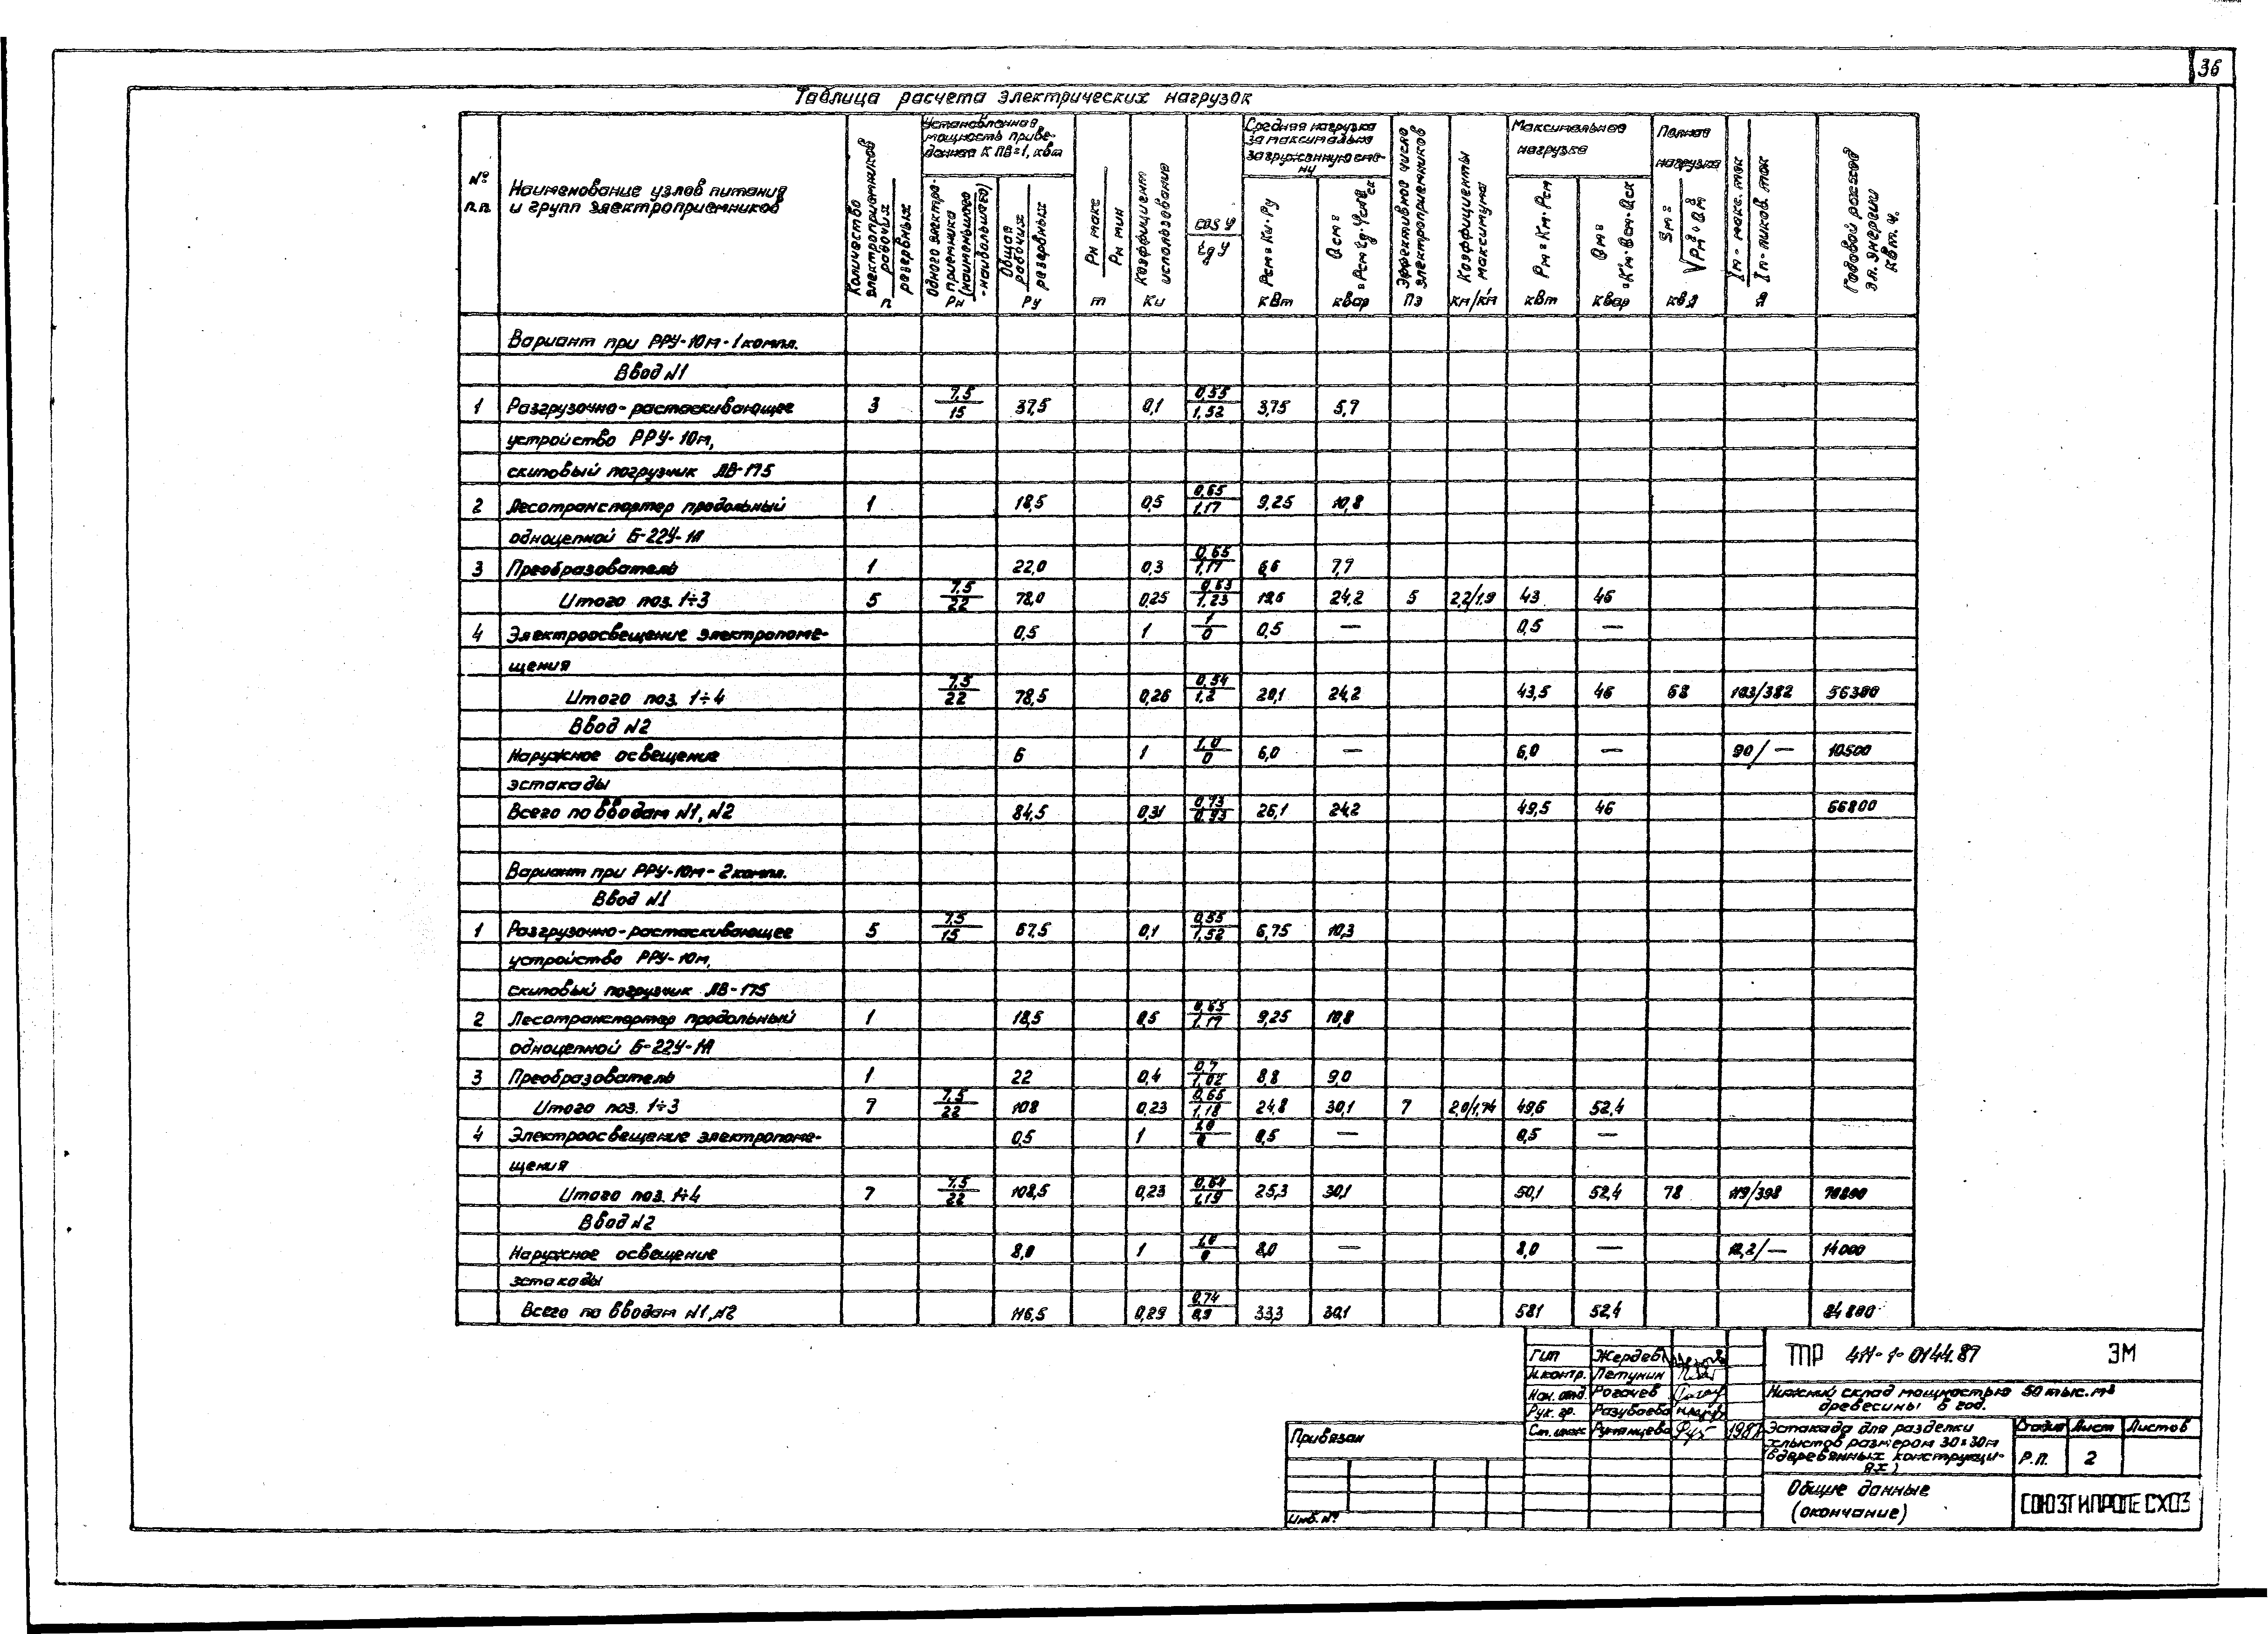 36
Таблица расчета электрических нагрузок
№ п.п.
Наименование узлов питания и групп электроприемников
Количество электроприемников рабочих резервных n
Установленная мощность приведенная к ПВ=1, квт
Одного электроприемника (наименьшего - наибольшего) Рн
Общая рабочих резервных Ру
Рн макс Рн мин m
Коэффициент использования Ки
cos φ tg φ
Средняя нагрузка за максимально загруженную смену
Рсм = Ки·Ру кВт
Qсм = квар
Эффективное число электроприемников Пэ
Коэффициенты максимума км/к'м
Максимальная нагрузка
Рм = Км·Рсм кВт
Qм = квар
Полная нагрузка
Sм = √Рм²+Qм² кВА
Iм - макс. ток Iп - пиков. ток А
Годовой расход эл. энергии квт. ч.
Вариант при РРУ-10м-1 компл.
Ввод №1
1 Разгрузочно-растаскивающее 3 7,5/15 37,5 0,1 0,55/1,52 3,75 5,7
устройство РРУ-10м,
скиповый погрузчик ЛВ-175
2 Лесотранспортер продольный 1 18,5 0,5 0,65/1,17 9,25 10,8
одноцепной Б-22У-1А
3 Преобразователь 1 22,0 0,3 0,65/1,17 6,6 7,7
Итого поз. 1÷3 5 7,5/22 78,0 0,25 0,63/1,23 19,6 24,2 5 2,2/1,9 43 46
4 Электроосвещение электропоме- 0,5 1 1/0 0,5 — 0,5 —
щения
Итого поз. 1÷4 7,5/22 78,5 0,26 0,64/1,2 20,1 24,2 43,5 46 68 103/382 56300
Ввод №2
Наружное освещение 6 1 1,0/0 6,0 — 6,0 — 90/— 10500
эстакады
Всего по вводам №1, №2 84,5 0,31 0,73/0,93 26,1 24,2 49,5 46 66800
Вариант при РРУ-10м-2 компл.
Ввод №1
1 Разгрузочно-растаскивающее 5 7,5/15 67,5 0,1 0,55/1,52 6,75 10,3
устройство РРУ-10м,
скиповый погрузчик ЛВ-175
2 Лесотранспортер продольный 1 18,5 0,5 0,65/1,17 9,25 10,8
одноцепной Б-22У-1А
3 Преобразователь 1 22 0,4 0,7/1,02 8,8 9,0
Итого поз. 1÷3 7 7,5/22 108 0,23 0,65/1,18 24,8 30,1 7 2,0/1,74 49,6 52,4
4 Электроосвещение электропоме- 0,5 1 1,0/0 0,5 — 0,5 —
щения
Итого поз. 1÷4 7 7,5/22 108,5 0,23 0,64/1,19 25,3 30,1 50,1 52,4 78 119/398 70800
Ввод №2
Наружное освещение 8,0 1 1,0/0 8,0 — 8,0 — 12,2/— 14000
эстакады
Всего по вводам №1, №2 116,5 0,29 0,74/0,9 33,3 30,1 58,1 52,4 84800
ГИП Жердев
Н.контр. Петунин
Нач. отд. Рогачев
Рук. гр. Разубаева
Ст. инж. Румянцева 1987
ТПР 411-1-0144.87 ЭМ
Нижний склад мощностью 50 тыс. м³ древесины в год.
Эстакада для разделки хлыстов размером 30×30м (в деревянных конструкциях)
Стадия Лист Листов
Р.П. 2
Общие данные (окончание)
СОЮЗГИПРОЛЕСХОЗ
Привязан
Инв. №